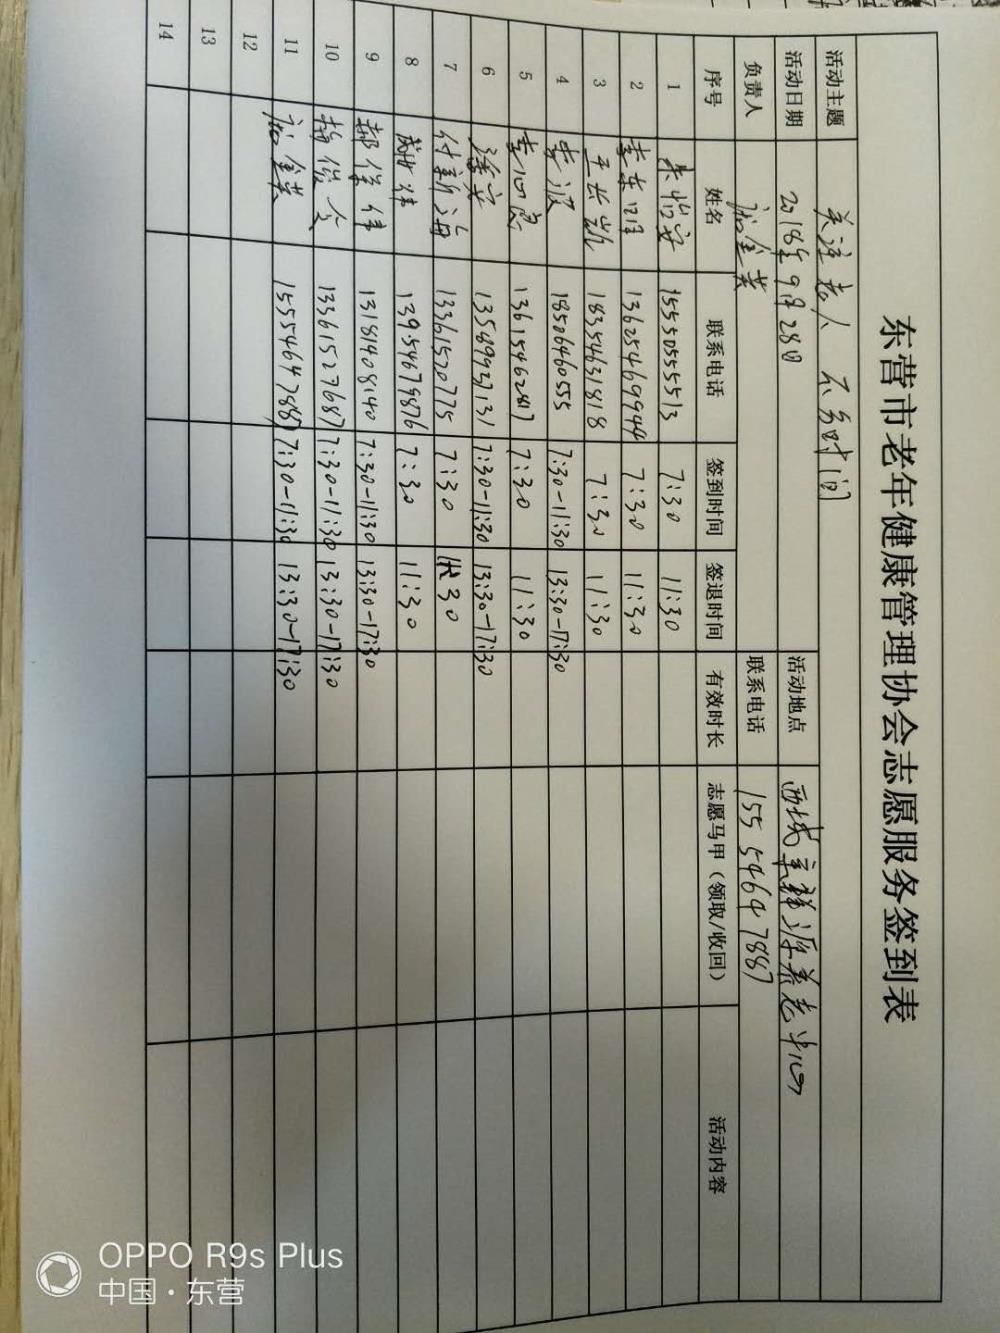 东营市老年健康管理协会志愿服务签到表
活动主题 关注老人 不分时间
活动日期 2018年9月28日 活动地点 西城 养老中心
负责人 金英 联系电话 15554647887
序号 姓名 联系电话 签到时间 签退时间 有效时长 志愿马甲（领取/收回） 活动内容
1 朱怡安 15550555513 7:30 11:30
2 李东 13625469944 7:30 11:30
3 王长凯 18354631818 7:30 11:30
4 李波 18506460555 7:30-11:30 13:30-17:30
5 13615462817 7:30 11:30
6 徐安 13589993731 7:30-11:30 13:30-17:30
7 付新海 13361520775 7:30 :30
8 13954679876 7:30 11:30
9 郝保伟 13181408140 7:30-11:30 13:30-17:30
10 杨俊 13361527687 7:30-11:30 13:30-17:30
11 金英 15554647887 7:30-11:30 13:30-17:30
12
13
14
OPPO R9s Plus
中国·东营